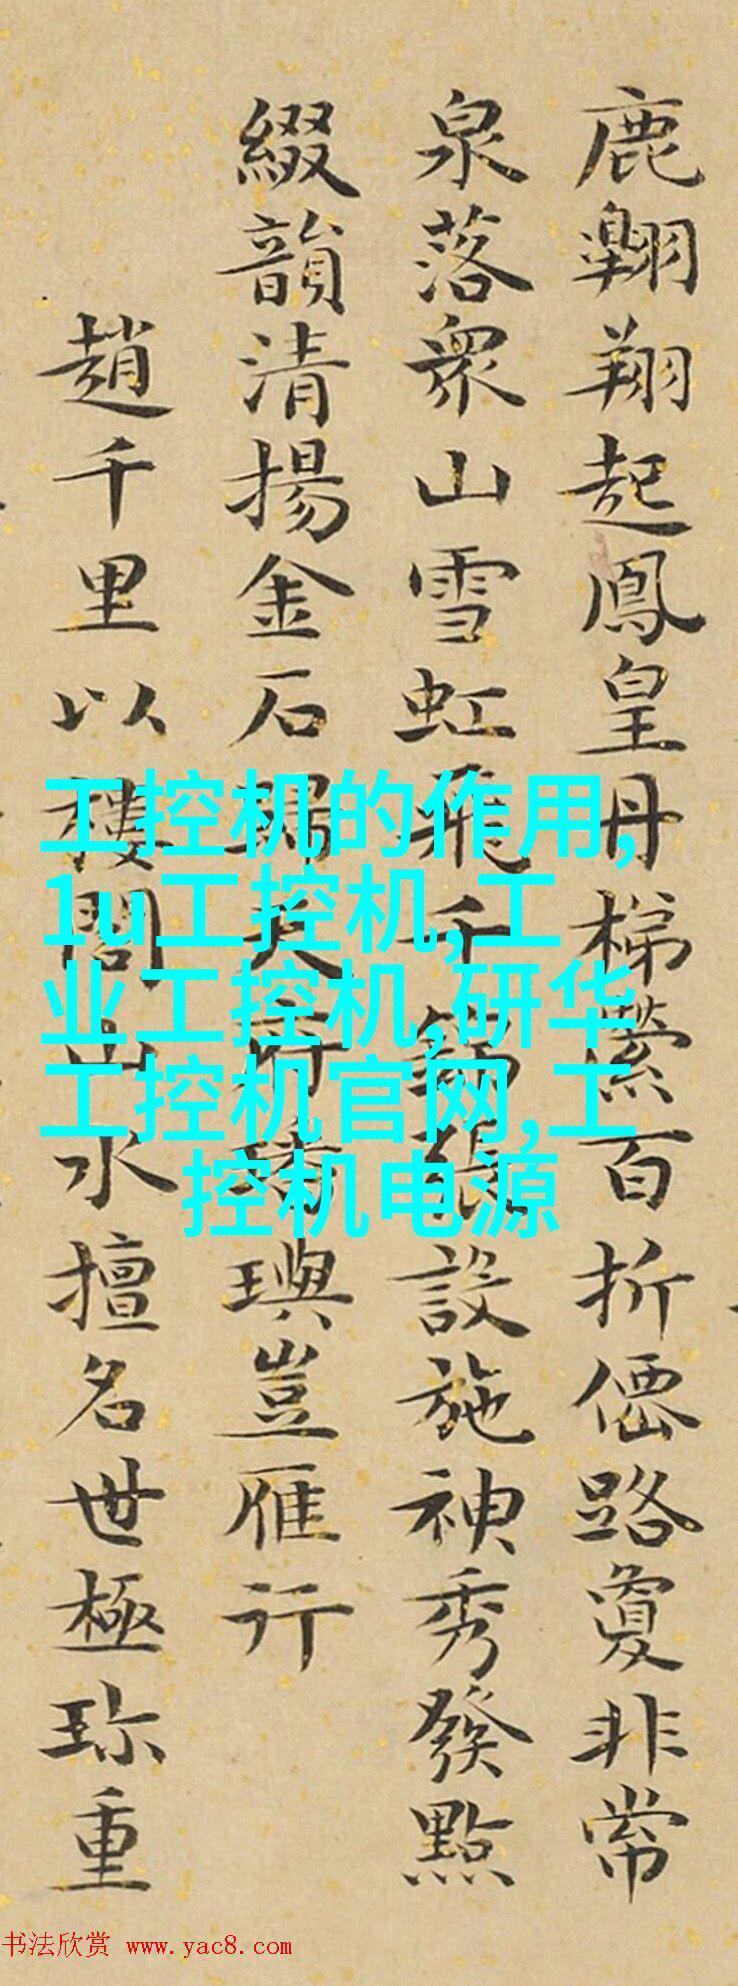 鹿翺翔起鳳皇丹梯縈百折僊路敻非常
泉落衆山雪虹飛千錦張設施神秀發點
綴韻清揚金石天璵豈雁行
趙千里以樓閣山水擅名世極珎重
工控机的作用,
1u工控机,工
业工控机,研华
工控机官网,工
控机电源
书法欣赏 www.yac8.com